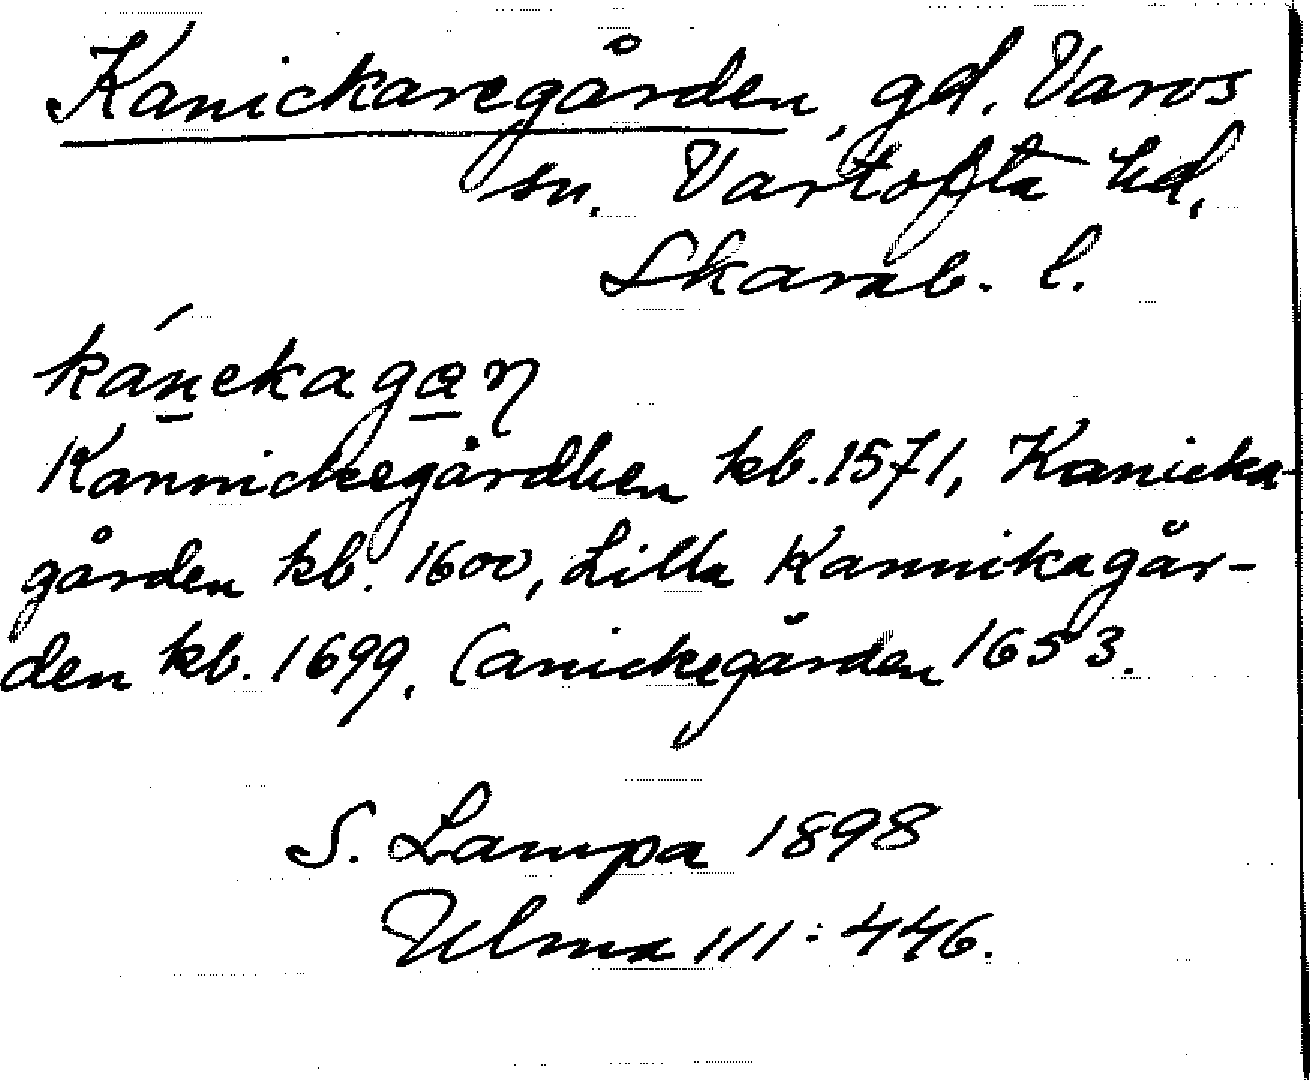 Kanickaregården, gd. Varvs
sn. Vartofta hd.
Skarab. l.
kánekagaɳ
Kannickegårdhen kb. 1571, Kanicka-
gården kb. 1600, Lilla Kannikagår-
den kb. 1699. Canickegården 1653.
S. Lampa 1898
Ulma 111:446.